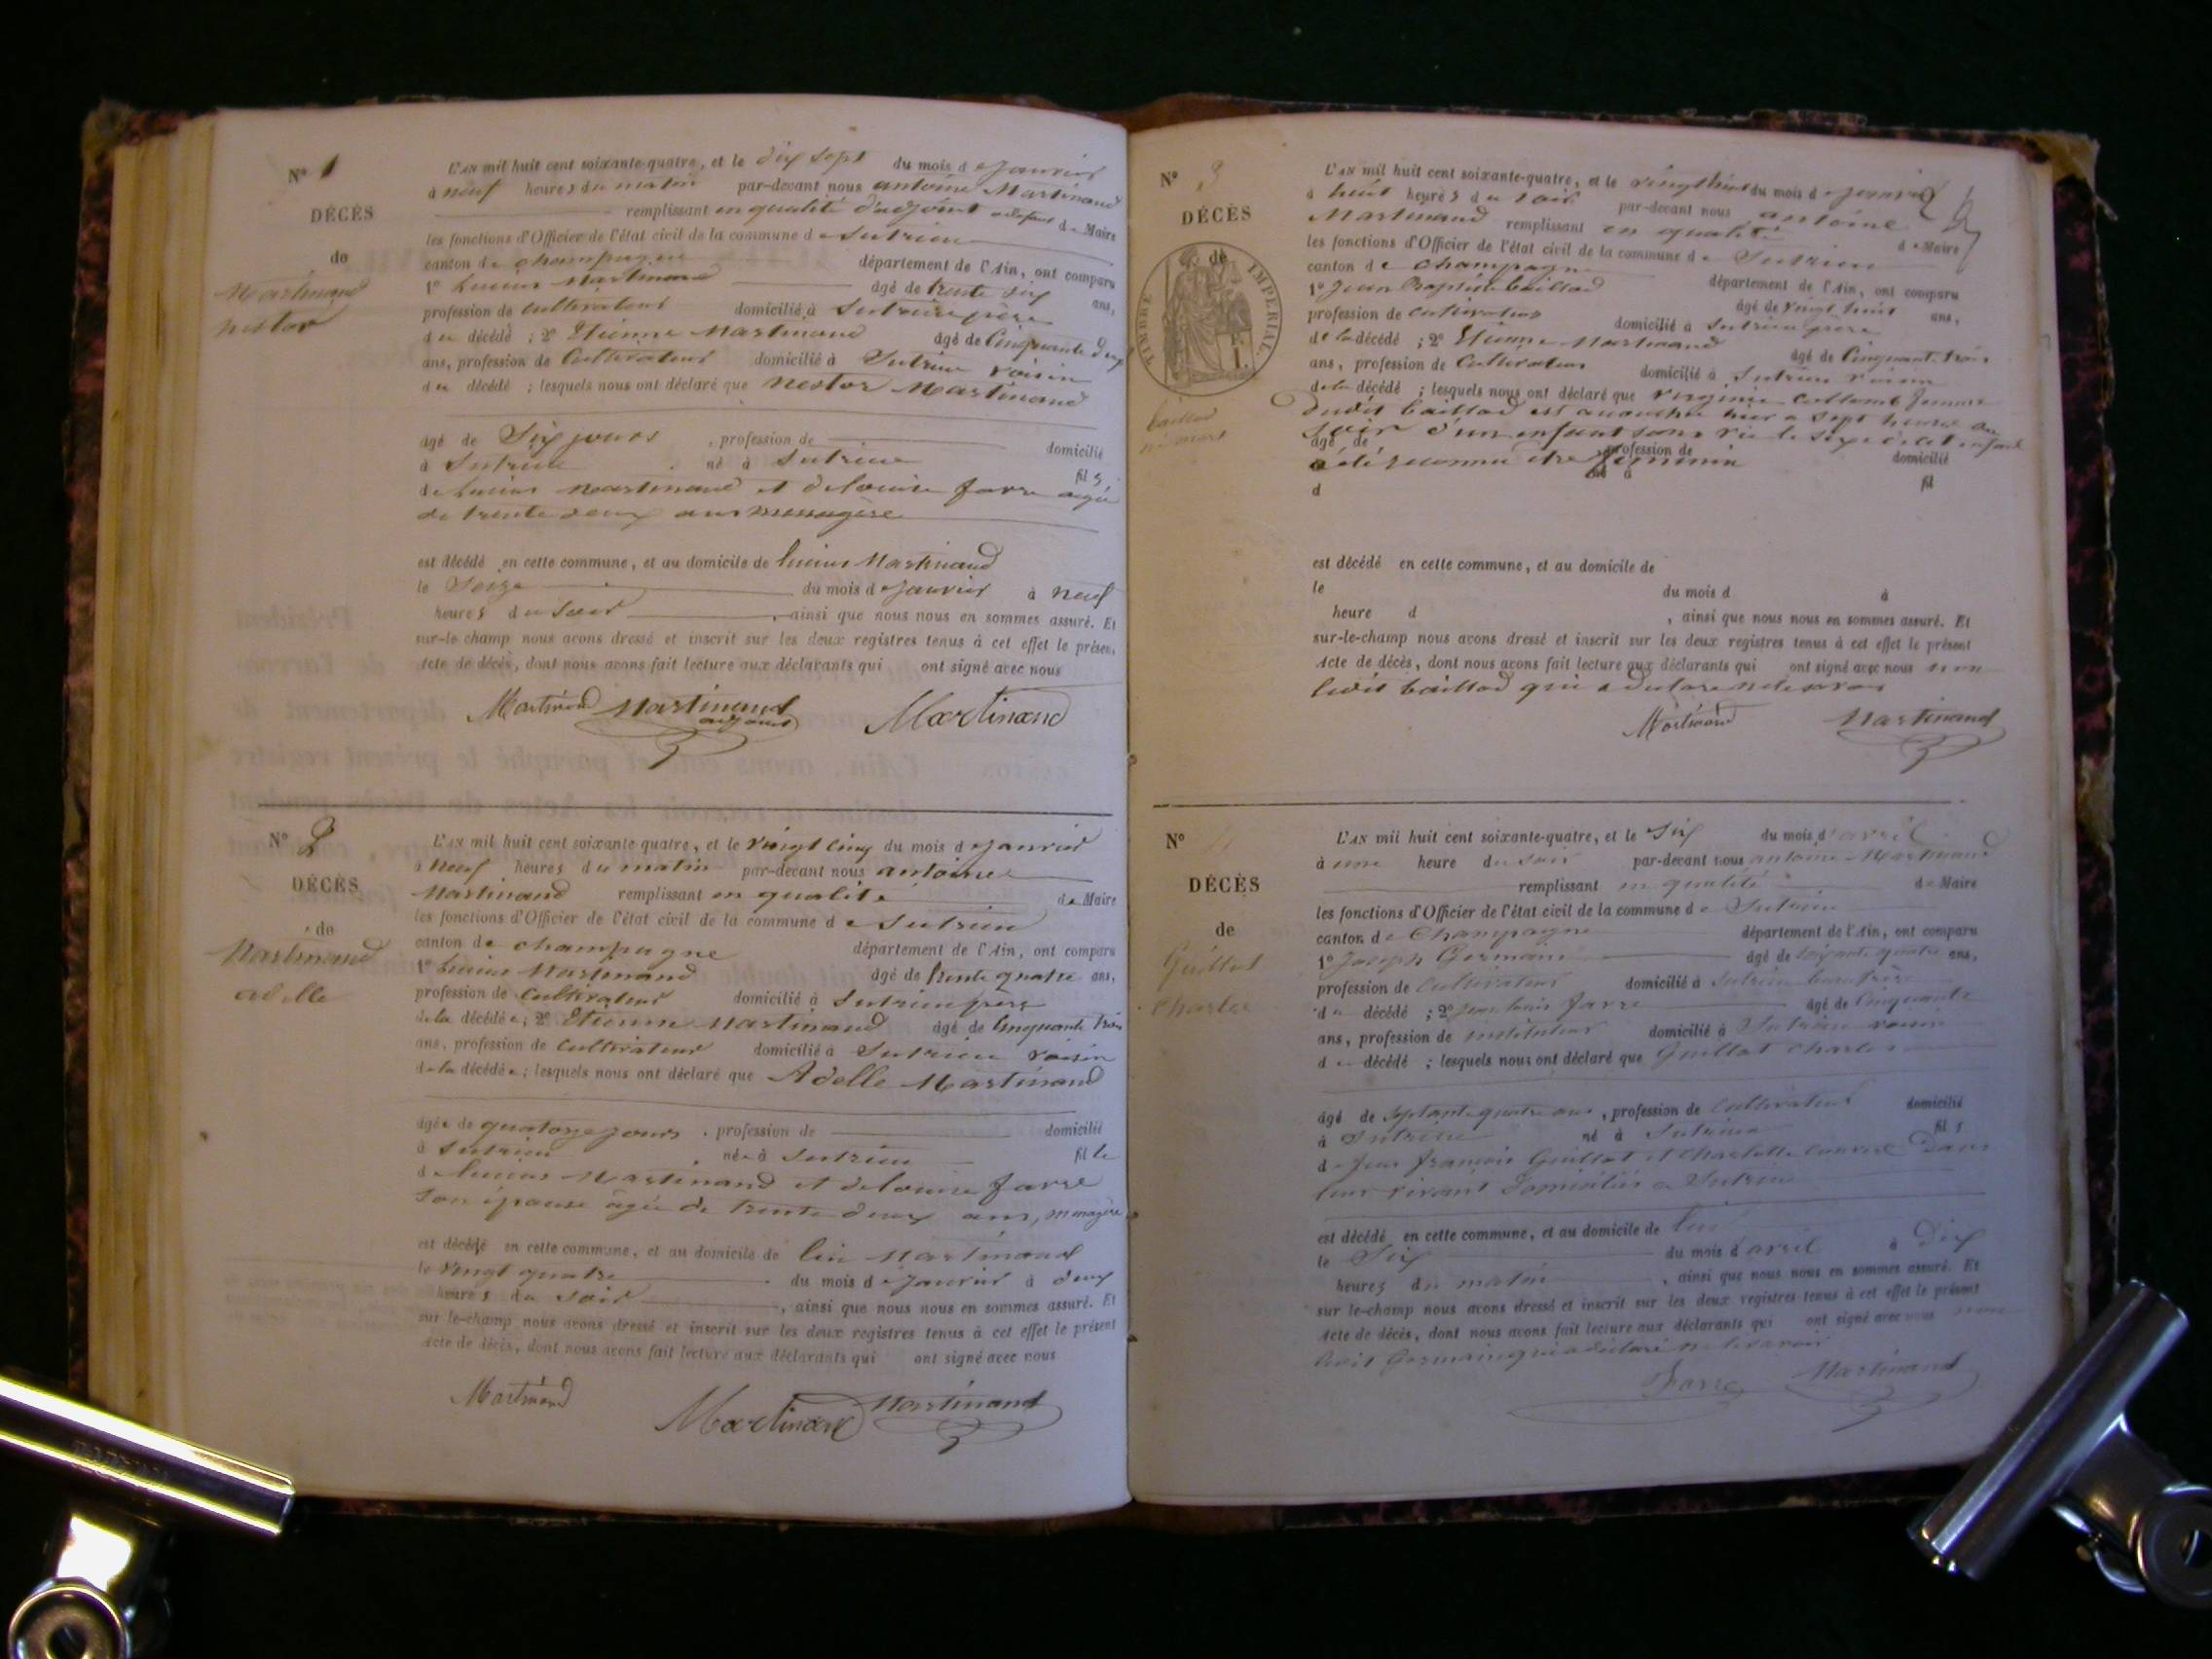 N° 1
DÉCÈS
de
Martinand
nestor
L'AN mil huit cent soixante-quatre, et le dix sept du mois de janvier
à neuf heures du matin par-devant nous antoine Martinand
remplissant en qualité d'adjoint de Maire
les fonctions d'Officier de l'état civil de la commune de Sutrieu
canton de champagne département de l'Ain, ont comparu
1° Lucien Martinand âgé de trente six ans,
profession de cultivateur domicilié à Sutrieu père
du décédé ; 2° Etienne Martinand âgé de Cinquante deux
ans, profession de Cultivateur domicilié à Sutrieu voisin
du décédé ; lesquels nous ont déclaré que Nestor Martinand
âgé de Six jours , profession de domicilié
à Sutrieu né à Sutrieu fils
de Lucien Martinand et de louise favre agée
de trente deux ans menagère
est décédé en cette commune, et au domicile de lucien Martinand
le Seize du mois de janvier à neuf
heures du soir , ainsi que nous nous en sommes assuré. Et
sur-le champ nous avons dressé et inscrit sur les deux registres tenus à cet effet le présent
Acte de décès, dont nous avons fait lecture aux déclarants qui ont signé avec nous
Martinand Martinand Martinand
adjoint
N° 2
DÉCÈS
de
Martinand
adelle
L'AN mil huit cent soixante quatre, et le vingt cinq du mois de janvier
à neuf heures du matin par-devant nous antoine
Martinand remplissant en qualité de Maire
les fonctions d'Officier de l'état civil de la commune de Sutrieu
canton de champagne département de l'Ain, ont comparu
1° Lucien Martinand âgé de trente quatre ans,
profession de Cultivateur domicilié à Sutrieu père
de la décédée ; 2° Etienne Martinand âgé de Cinquante trois
ans, profession de Cultivateur domicilié à Sutrieu voisin
de la décédée ; lesquels nous ont déclaré que Adelle Martinand
âgée de quatorze jours , profession de domicilié
à Sutrieu née à Sutrieu fille
de lucien Martinand et de louise favre
Son épouse âgée de trente deux ans, menagère
est décédé en cette commune, et au domicile de Martinand
le vingt quatre du mois de janvier à deux
heures du soir , ainsi que nous nous en sommes assuré. Et
sur le-champ nous avons dressé et inscrit sur les deux registres tenus à cet effet le présent
Acte de décès, dont nous avons fait lecture aux déclarants qui ont signé avec nous
Martinand Martinand Martinand
N° 3
DÉCÈS
de
TIMBRE IMPERIAL
baillod
L'AN mil huit cent soixante-quatre, et le vingt huit du mois de janvier
à huit heures du soir par-devant nous antoine
Martinand remplissant en qualité de Maire
les fonctions d'Officier de l'état civil de la commune de Sutrieu
canton de champagne département de l'Ain, ont comparu
1° Jean Baptiste baillod âgé de vingt huit ans,
profession de cultivateur domicilié à Sutrieu père
de la décédé ; 2° Etienne Martinand âgé de Cinquante trois
ans, profession de Cultivateur domicilié à Sutrieu voisin
de la décédé ; lesquels nous ont déclaré que Virginie femme
dudit baillod est accouchée hier a sept heures du
soir d'un enfant sans vie le sexe de cet enfant
âgé de profession de domicilié
a été reconnu être féminin
à né à fil
d
est décédé en cette commune, et au domicile de
le du mois d à
heure d , ainsi que nous nous en sommes assuré. Et
sur-le-champ nous avons dressé et inscrit sur les deux registres tenus à cet effet le présent
Acte de décès, dont nous avons fait lecture aux déclarants qui ont signé avec nous non
ledit baillod qui a déclaré ne savoir
Martinand Martinand
N° 4
DÉCÈS
de
Guillot
Charles
L'AN mil huit cent soixante-quatre, et le Six du mois d'avril
à une heure du soir par-devant nous antoine Martinand
remplissant en qualité de Maire
les fonctions d'Officier de l'état civil de la commune de Sutrieu
canton de Champagne département de l'Ain, ont comparu
1° Joseph Germain âgé de soixante quatre ans,
profession de Cultivateur domicilié à Sutrieu beau frère
du décédé ; 2° Jean louis favre âgé de Cinquante
ans, profession de instituteur domicilié à Sutrieu voisin
du décédé ; lesquels nous ont déclaré que Guillot Charles
âgé de septante quatre ans , profession de Cultivateur domicilié
à Sutrieu né à Sutrieu fils
de Jean françois Guillot et Charlotte
leur vivant Domiciliés a Sutrieu
est décédé en cette commune, et au domicile de lui
le Six du mois d'avril à dix
heures du matin , ainsi que nous nous en sommes assuré. Et
sur le-champ nous avons dressé et inscrit sur les deux registres tenus à cet effet le présent
Acte de décès, dont nous avons fait lecture aux déclarants qui ont signé avec nous non
ledit Germain qui a déclaré ne le savoir
Favre Martinand